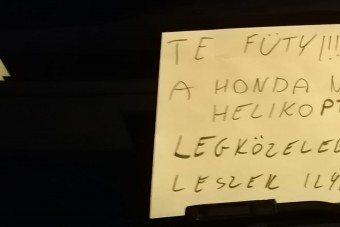 TE FÜTY!!!
A HONDA N
HELIKOPT
LEGKÖZELEB
LESZEK ILY